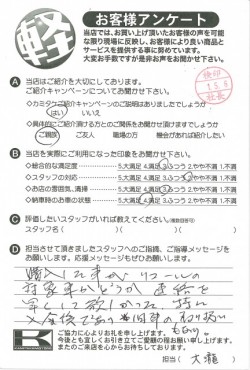 軽
お客様アンケート
当店では、お買い上げ頂いたお客様の声を可能
な限り現場に反映し、お客様により良い商品と
サービスを提供する事に努めています。
大変お手数ですが是非お声をお聞かせ下さい。
検印
A 当店はご紹介を大切にしております。
ご紹介キャンペーンについてお聞かせ下さい。
◇カミタケご紹介キャンペーンのご説明はありましたでしょうか
はい いいえ
◇具体的にご紹介頂ける方とのご関係をお聞かせ頂けますでしょうか
ご親族 ご友人 職場の方 機会があれば紹介したい
B 当店を実際にご利用になった印象をお聞かせ下さい。
◇総合的な満足度 5.大満足 4.満足 3.ふつう 2.やや不満 1.不満
◇スタッフの対応 5.大満足 4.満足 3.ふつう 2.やや不満 1.不満
◇お店の雰囲気、清掃 5.大満足 4.満足 3.ふつう 2.やや不満 1.不満
◇納車時のお車の状態 5.大満足 4.満足 3.ふつう 2.やや不満 1.不満
C 評価したいスタッフがいれば教えてください。(複数回答可)
スタッフ名( )( )
D 担当させて頂きましたスタッフへのご指摘、ご指導メッセージを
お願いします。応援メッセージもぜひお願いします。
購入した車が リコールの
対象車かどうか 連絡を
早くして欲しかった。
K
ご協力に心よりお礼を申し上げます。
今後とも宜しくお引き立てご愛顧の程お願い申し上げます。
またのご来店を心からお待ちしております。
担当( 大瀧 )